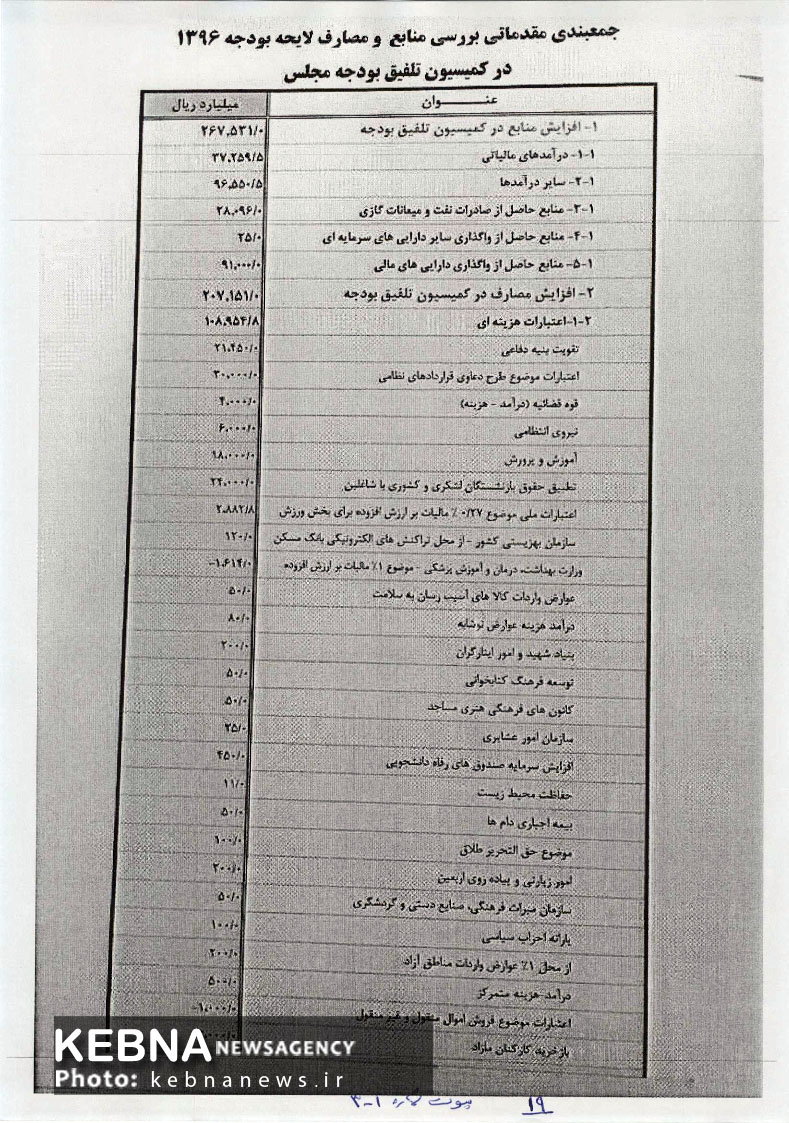 جمعبندی مقدماتی بررسی منابع و مصارف لایحه بودجه ۱۳۹۶
در کمیسیون تلفیق بودجه مجلس
عنـــــــوان میلیارد ریال
۱- افزایش منابع در کمیسیون تلفیق بودجه ۲۶۷,۵۳۱/۰
۱-۱- درآمدهای مالیاتی ۳۷,۲۵۹/۵
۱-۲- سایر درآمدها ۹۶,۵۵۰/۵
۱-۳- منابع حاصل از صادرات نفت و میعانات گازی ۲۸,۰۹۶/۰
۱-۴- منابع حاصل از واگذاری سایر دارایی های سرمایه ای ۲۵/۰
۱-۵- منابع حاصل از واگذاری دارایی های مالی ۹۱,۰۰۰/۰
۲- افزایش مصارف در کمیسیون تلفیق بودجه ۲۰۷,۱۵۱/۰
۲-۱-اعتبارات هزینه ای ۱۰۸,۹۵۴/۸
تقویت بنیه دفاعی ۲۱,۴۵۰/۰
اعتبارات موضوع طرح دعاوی قراردادهای نظامی ۳۰,۰۰۰/۰
قوه قضائیه (درآمد - هزینه) ۴,۰۰۰/۰
نیروی انتظامی ۶,۰۰۰/۰
آموزش و پرورش ۱۸,۰۰۰/۰
تطبیق حقوق بازنشستگان لشکری و کشوری با شاغلین ۲۴,۰۰۰/۰
اعتبارات ملی موضوع ۰/۲۷ ٪ مالیات بر ارزش افزوده برای بخش ورزش ۲,۸۸۲/۸
سازمان بهزیستی کشور - از محل تراکنش های الکترونیکی بانک مسکن ۱۲۰/۰
وزارت بهداشت، درمان و آموزش پزشکی - موضوع ۱٪ مالیات بر ارزش افزوده -۱,۶۱۴/۰
عوارض واردات کالا های آسیب رسان به سلامت ۵۰/۰
درآمد هزینه عوارض نوشابه ۸۰/۰
بنیاد شهید و امور ایثارگران ۲۰۰/۰
توسعه فرهنگ کتابخوانی ۵۰/۰
کانون های فرهنگی هنری مساجد ۵۰/۰
سازمان امور عشایری ۲۵/۰
افزایش سرمایه صندوق های رفاه دانشجویی ۴۵۰/۰
حفاظت محیط زیست ۱۱/۰
بیمه اجباری دام ها ۵۰/۰
موضوع حق التحریر طلاق ۱۰۰/۰
امور زیارتی و پیاده روی اربعین ۲۰۰/۰
سازمان میراث فرهنگی، صنایع دستی و گردشگری ۵۰/۰
یارانه احزاب سیاسی ۱۰۰/۰
از محل ۱٪ عوارض واردات مناطق آزاد ۲۰۰/۰
درآمد-هزینه متمرکز ۵۰۰/۰
اعتبارات موضوع فروش اموال منقول و غیر منقول -۱,۰۰۰/۰
بازخرید کارکنان مازاد
KEBNA NEWSAGENCY
Photo: kebnanews.ir
۱۹ پیوست شماره ۱-۳